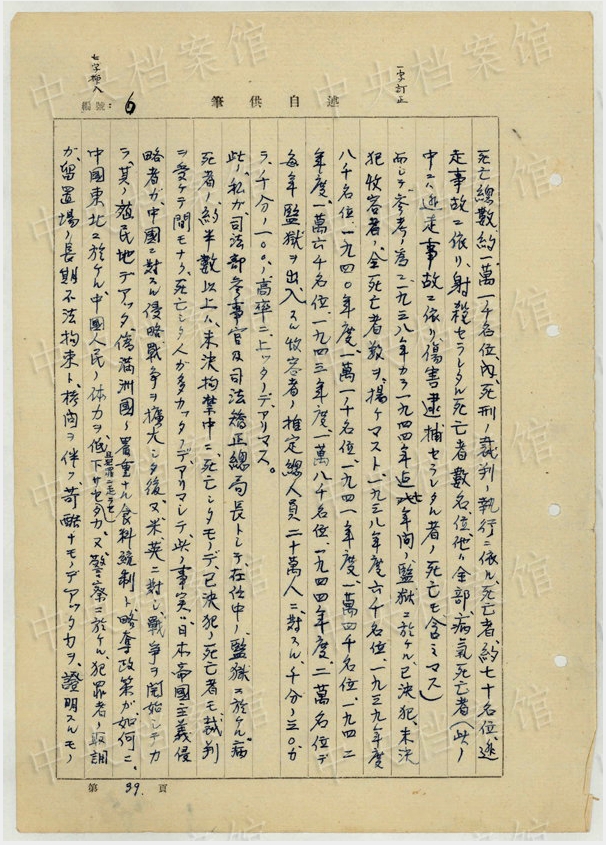 述自供筆
編號：6
一字訂正
七字挿入
死亡總數約一萬一千名位、內、死刑ノ裁判ノ執行ニ依ル死亡者、約七十名位、逃
走事故ニ依リ、射殺セラレタル死亡者數名位、他ハ全部、病氣死亡者（此ノ
中ニハ逃走事故ニ依リ傷害逮捕セラレタル者ノ死亡モ含ミマス）
而シテ参考ノ為ニ一九三八年カラ一九四四年迄此年間ノ監獄ニ於ケル已決犯、未決
犯收容者ノ全死亡者數ヲ揚ケマスト、一九三八年度六千名位、一九三九年度
八千名位、一九四〇年度、一萬一千名位、一九四一年度、一萬四千名位、一九四二
年度、一萬六千名位、一九四三年度、一萬八千名位、一九四四年度、二萬名位デ
每年監獄ヲ出入スル收容者ノ推定總人員二十萬人ニ對スル、千分ノ三〇カ
ラ、千分ノ一〇〇ノ高率ニ上ッタノデアリマス。
此ノ私ガ司法部参事官及司法矯正總局長トシテ、在任中ノ監獄ニ於ケル病
死者ノ約半數以上ハ未決拘禁中ニ死亡シタモノデ、已決犯ノ死亡者モ裁判
ヲ受ケテ間モナク、死亡シタ人が多カッタノデアリマシテ、此ノ事実ハ日本帝國主義侵
略者ガ、中國ニ對スル侵略戰爭ヲ擴大シタ後、又、米英ニ對シ、戰爭ヲ開始シテカ
ラ、其ノ殖民地デアッタ、偽滿洲國ノ嚴重ナル食料統制ト、略奪政策ガ如何ニ、
中國東北ニ於ケル中國人民ノ体力ヲ、低下サセタカ、又、警察ニ於ケル、犯罪者ノ取調
ガ、留置場ノ長期不法拘束ト、拷問ヲ伴フ、苛酷ナモノデアッタカヲ、證明スルモノ
第 39. 頁
中央档案馆